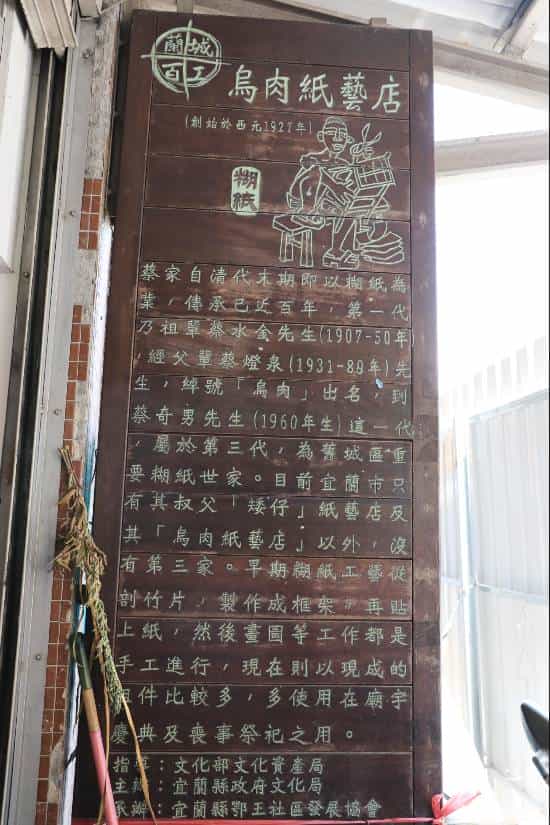 蘭城
百工
烏肉紙藝店
(創始於西元1927年)
糊紙
蔡家自清代末期即以糊紙為
業，傳承已近百年，第一代
乃祖輩蔡水金先生(1907-50年)
，經父輩蔡燈泉(1931-89年)先
生，綽號「烏肉」出名，到
蔡奇男先生(1960年生)這一代
，屬於第三代，為舊城區重
要糊紙世家。目前宜蘭市只
有其叔父「矮仔」紙藝店及
其「烏肉紙藝店」以外，沒
有第三家。早期糊紙工藝從
剖竹片，製作成框架，再貼
上紙，然後畫圖等工作都是
手工進行，現在則以現成的
組件比較多，多使用在廟宇
慶典及喪事祭祀之用。
指導：文化部文化資產局
主辦：宜蘭縣政府文化局
承辦：宜蘭縣鄂王社區發展協會